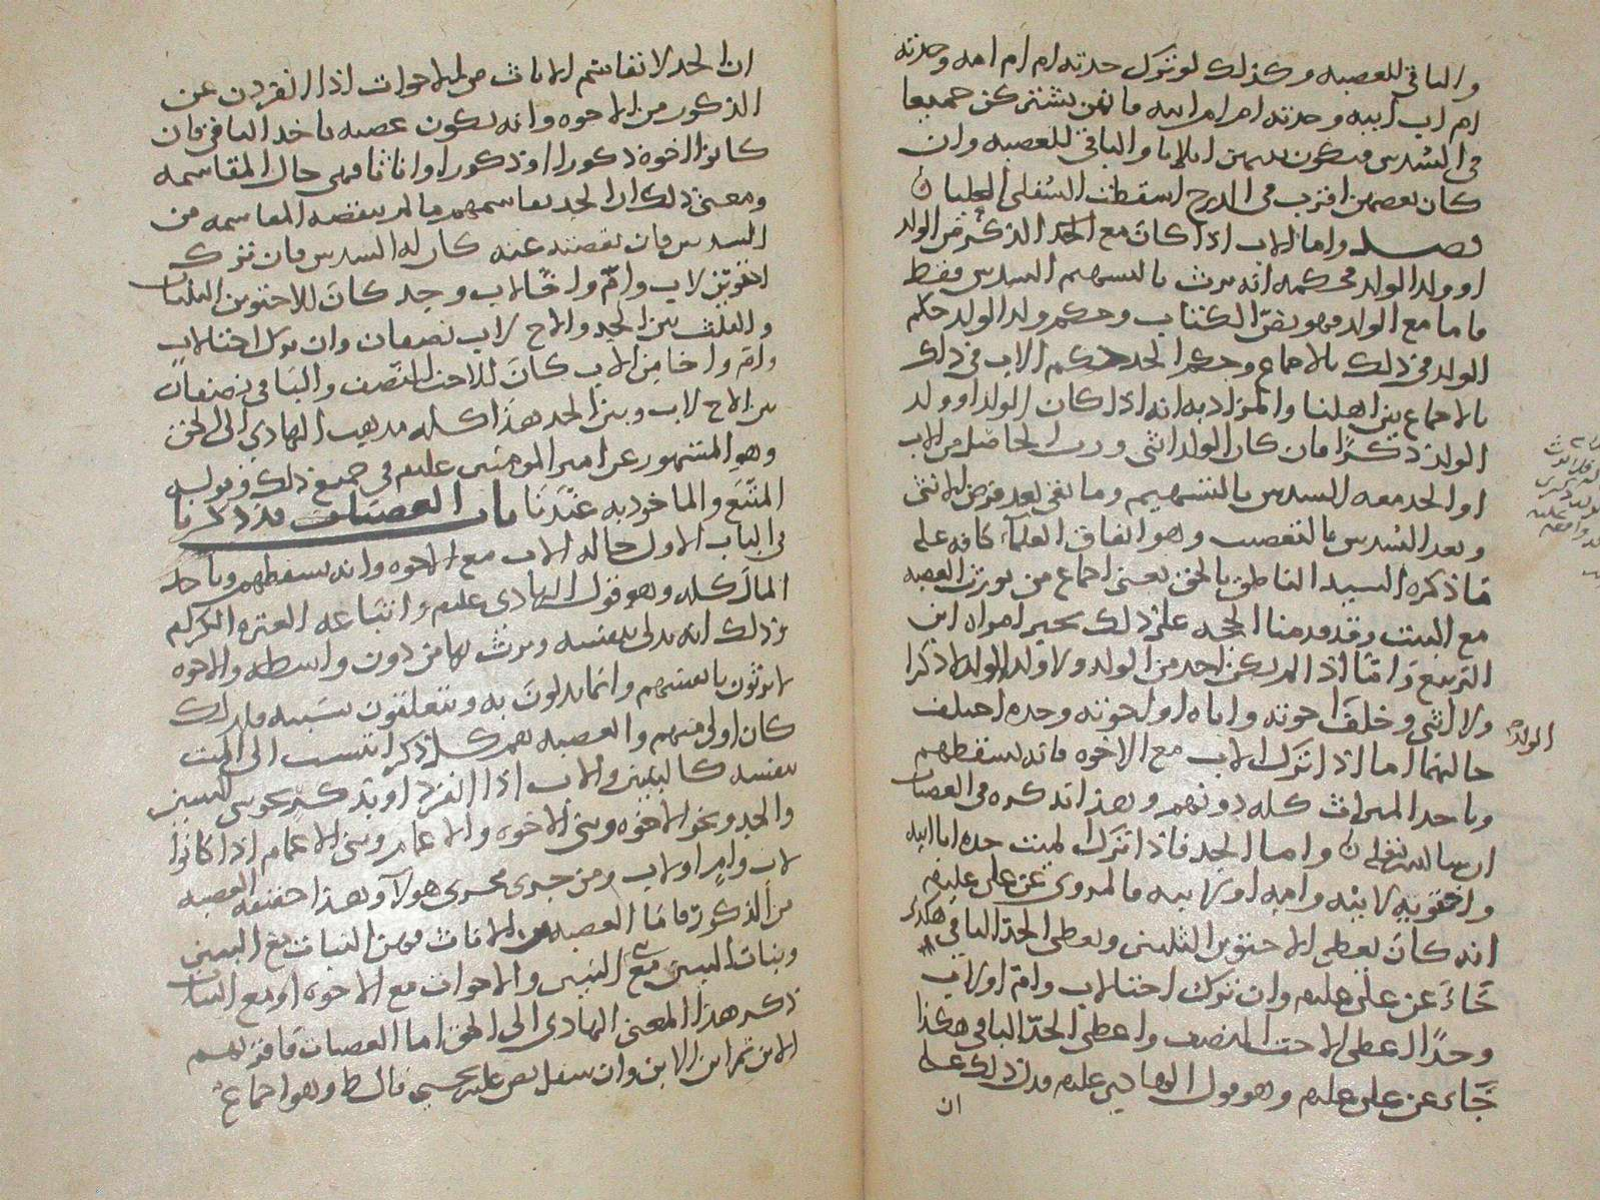 والباقي للعصبه وكذلك لو ترك جدته ام ام امه وجدته
ام اب ابيه وجدته ام ام ابيه فانهن يشتركن جميعا
في السدس فيكون بينهن اثلاثا والباقي للعصبه وان
كان بعضهن اقرب في الدرج اسقطت السفلى العليا
فصل واما الاب اذا كان مع الذكر من الولد
او ولد الولد فحكمه انه يرث بالتسهيم السدس فقط
فاما مع الولد فهو نص الكتاب وحكم ولد الولد حكم
الولد في ذلك بالاجماع وحكم الجد حكم الاب في ذلك
بالاجماع بين اهلنا والمراد به انه اذا كان الولد او ولد
الولد ذكرا فان كان الولد انثى ورث الحاصل من الاب
او الجد معه السدس بالتسهيم وما بقي بعد فرض الانثى
وبعد السدس بالتعصيب وهو اتفاق العلماء كافه على
ما ذكره السيد الناطق بالحق يعني اجماع من يورث العصبه
مع البنت وقد قدمنا الحجه على ذلك بخبر امراه ابن
الربيع واما اذا لم يكن احد من الولد ولا ولد الولد لا ذكرا
ولا انثى وخلف اخوته واباه او اخوته وجده اختلف
الولد
حالهما اما اذا ترك الاب مع الاخوه فانه يسقطهم
وياخذ الميراث كله دونهم وهذا نذكره في العصبات
ان شا الله تعالى واما الجد فاذا ترك الميت جده ابا ابيه
واختيه لابيه وامه او لابيه فالمروي عن علي عليلم
انه كان يعطي الاختين الثلثين ويعطي الجد الباقي هكذا
جاء عن علي عليلم وان ترك اختا لاب وام او لاب
وجدا اعطى الاخت النصف واعطى الجد الباقي هكذا
جاء عن علي عليلم وهو قول الهادي عليلم فدل ذلك على
ان
ان الجد لا يقاسم الاناث من الاخوات اذا انفردن عن
الذكور من الاخوه وانه يكون عصبه ياخذ الباقي فان
كانوا الاخوه ذكورا او ذكورا واناثا فهي حال المقاسمه
ومعنى ذلك ان الجد يقاسمهم ما لم ينقصه المقاسمه من
السدس فان نقصته عنه كان له السدس فان ترك
اختين لاب وام واخا لاب وجد كان للاختين الثلثان
والثلث بين الجد والاخ لاب نصفان وان ترك اختا لاب
وام واخا من الاب كان للاخت النصف والباقي نصفان
بين الاخ لاب وبين الجد هذا كله مذهب الهادي الى الحق
وهو المشهور عن امير المومنين عليلم في جميع ذلك وقوله
المتبع والماخوذ به عندنا باب العصبات قد ذكرنا
في الباب الاول حاله الاب مع الاخوه وانه يسقطهم وياخذ
المال كله وهو قول الهادي عليلم واتباعه العتره الكرام
وذلك انه يدلي بنفسه ويرث بها من دون واسطه والاخوه
لا يرثون بانفسهم وانما يدلون به ويتعلقون بسببه فلذلك
كان اولى منهم والعصبه هم كل ذكر انتسب الى الميت
بنفسه كالبنين والاب اذا انفرد او بذكر نحو بني البنين
والجد ونحو الاخوه وبني الاخوه والاعمام وبني الاعمام اذا كانوا
لاب وام او لاب ومن جرى مجرى هولاء وهذا حقيقه العصبه
من الذكور فاما العصبه من الاناث فهن البنات مع البنين
وبنات البنين مع بني البنين والاخوات مع الاخوه او مع البنات
ذكر هذا المعنى الهادي الى الحق اما العصبات فاقربهم
الابن ثم ابن الابن وان سفل نص عليه يحيى قال ط وهو اجماع